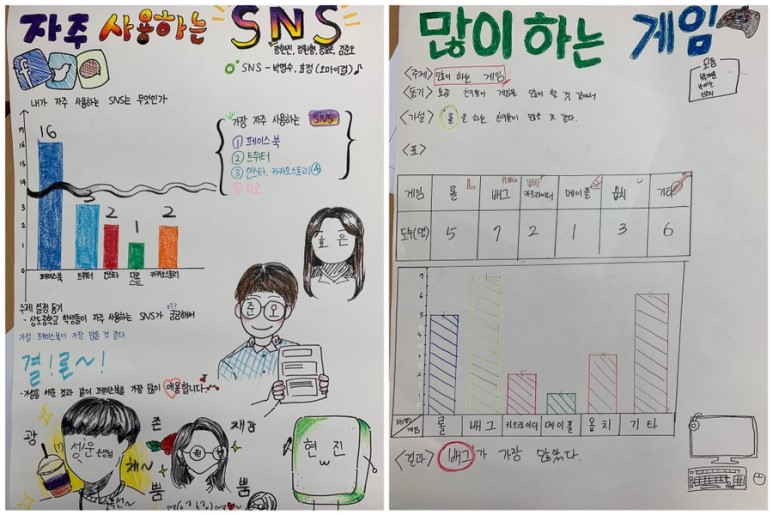 자주 사용하는 SNS
내가 자주 사용하는 SNS는 무엇인가
16
3
2
1
2
페이스북
트위터
인스타
카카오스토리
가장 자주 사용하는 SNS
① 페이스북
② 트위터
③ 인스타, 카카오스토리
효은
준오
주제 설정 동기
- 상도중학교 학생들이 자주 사용하는 SNS가 궁금해서
가설 : 페이스북이 가장 많을 것 같다.
결!론~!
- 가설을 세운 것과 같이 페이스북을 가장 많이 애용합니다.
광
성운
존
재감
뿜
뿜
현진
많이 하는 게임
<주제> 많이 하는 게임
<동기> 요즘 친구들이 게임을 많이 할 것 같아서
<가설> 롤을 하는 친구들이 많을 것 같다.
<표>
게임 롤 배그 카트라이더 메이플 옵치 기타
도수(명) 5 7 2 1 3 6
7
6
5
4
3
2
1
롤 배그 카트라이더 메이플 옵치 기타
<결과> 배그가 가장 많았다.